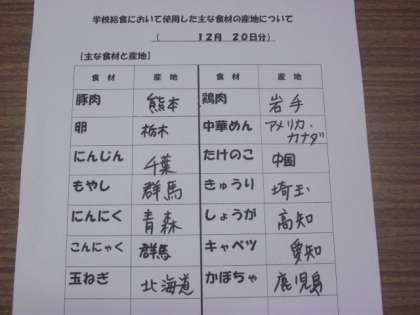 学校給食において使用した主な食材の産地について
( 12月 20日分)
[主な食材と産地]
食 材 産 地 食 材 産 地
豚肉 熊本 鶏肉 岩手
卵 栃木 中華めん アメリカ・カナダ
にんじん 千葉 たけのこ 中国
もやし 群馬 きゅうり 埼玉
にんにく 青森 しょうが 高知
こんにゃく 群馬 キャベツ 愛知
玉ねぎ 北海道 かぼちゃ 鹿児島